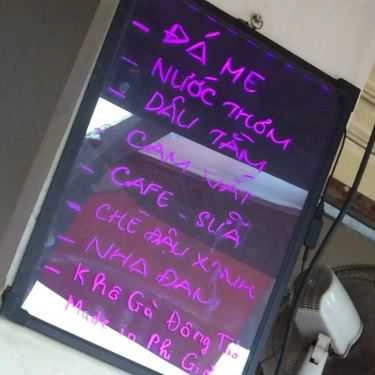 - ĐÁ ME
- NƯỚC THƠM
- DÂU TẰM
- CAM VẮT
- CAFE - SỮA
- CHÈ ĐẬU XANH
- NHA ĐAM
- Khô Gà Đông Tảo
Made in Phi Gia